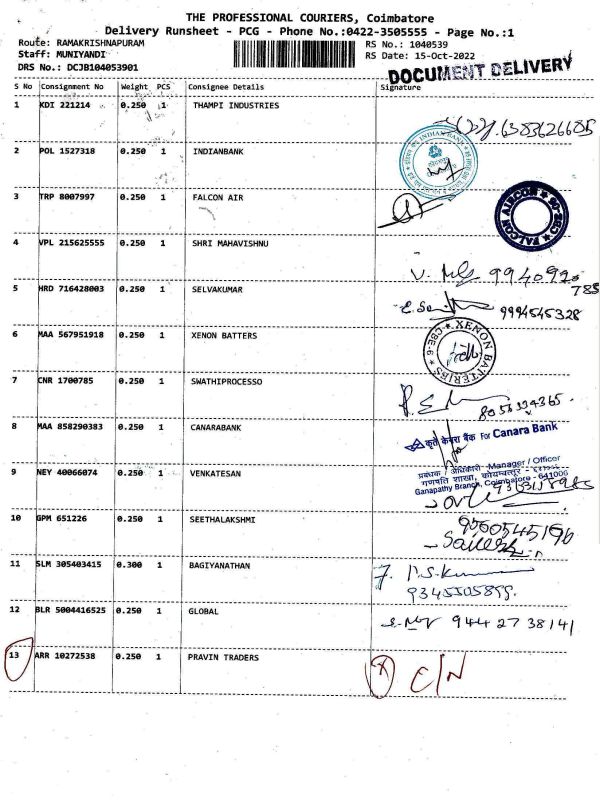 THE PROFESSIONAL COURIERS, Coimbatore
Delivery Runsheet - PCG - Phone No.:0422-3505555 - Page No.:1
Route: RAMAKRISHNAPURAM RS No.: 1040539
Staff: MUNIYANDI RS Date: 15-Oct-2022
DRS No.: DCJB104053901 DOCUMENT DELIVERY
S No Consignment No Weight PCS Consignee Details Signature
1 KDI 221214 0.250 1 THAMPI INDUSTRIES
6383626685
INDIAN BANK
2 POL 1527318 0.250 1 INDIANBANK
3 TRP 8007997 0.250 1 FALCON AIR
FALCON AIRCON
4 VPL 215625555 0.250 1 SHRI MAHAVISHNU
5 HRD 716428003 0.250 1 SELVAKUMAR
9994545328
6 MAA 567951918 0.250 1 XENON BATTERS
XENON BATTERIES CBE-6
7 CNR 1700785 0.250 1 SWATHIPROCESSO
8 MAA 858290383 0.250 1 CANARABANK
कृते केनरा बैंक For Canara Bank
9 NEY 40066074 0.250 1 VENKATESAN
प्रबंधक / अधिकारी Manager / Officer
गणपति शाखा, कोयम्बत्तूर - 641006
Ganapathy Branch, Coimbatore - 641006
10 GPM 651226 0.250 1 SEETHALAKSHMI
11 SLM 305403415 0.300 1 BAGIYANATHAN
12 BLR 5004416525 0.250 1 GLOBAL
9442738141
13 ARR 10272538 0.250 1 PRAVIN TRADERS
C/N